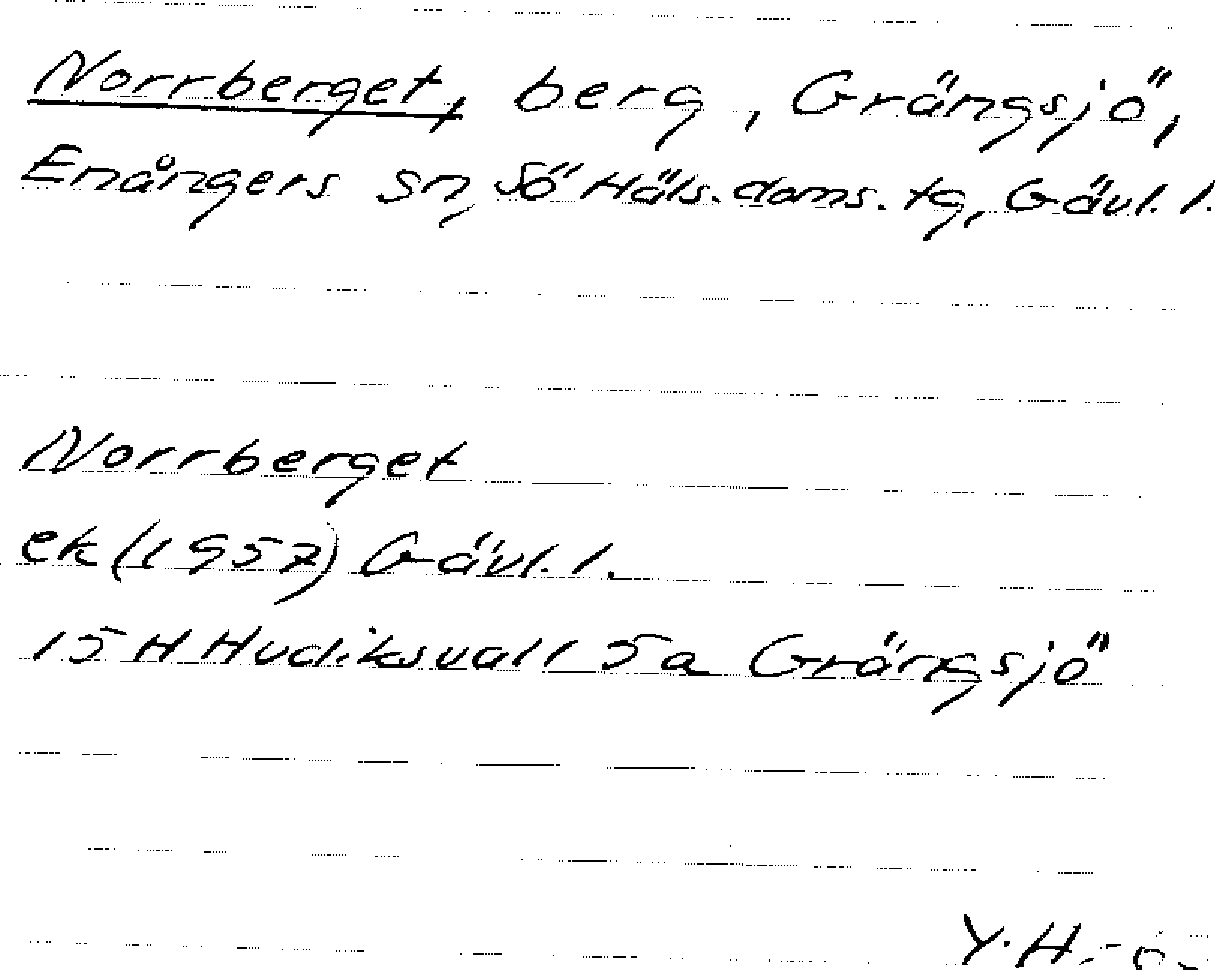 Norrberget, berg, Grängsjö,
Enångers sn, Sö Häls. doms. tg, Gävl. l.
Norrberget
ek (1957) Gävl. l.
15 H Hudiksvall 5a Grängsjö
Y. H